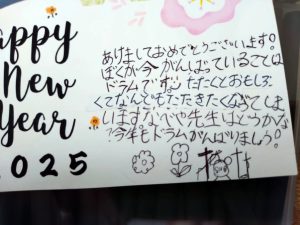 Happy
New
Year
2025
あけましておめでとうございます!
ぼくが今がんばっていることは
ドラムです。たたくとおもしろ
くてなんどもたたきたくなってしま
います
先生はどうかな?
今年もドラムがんばりましょう!